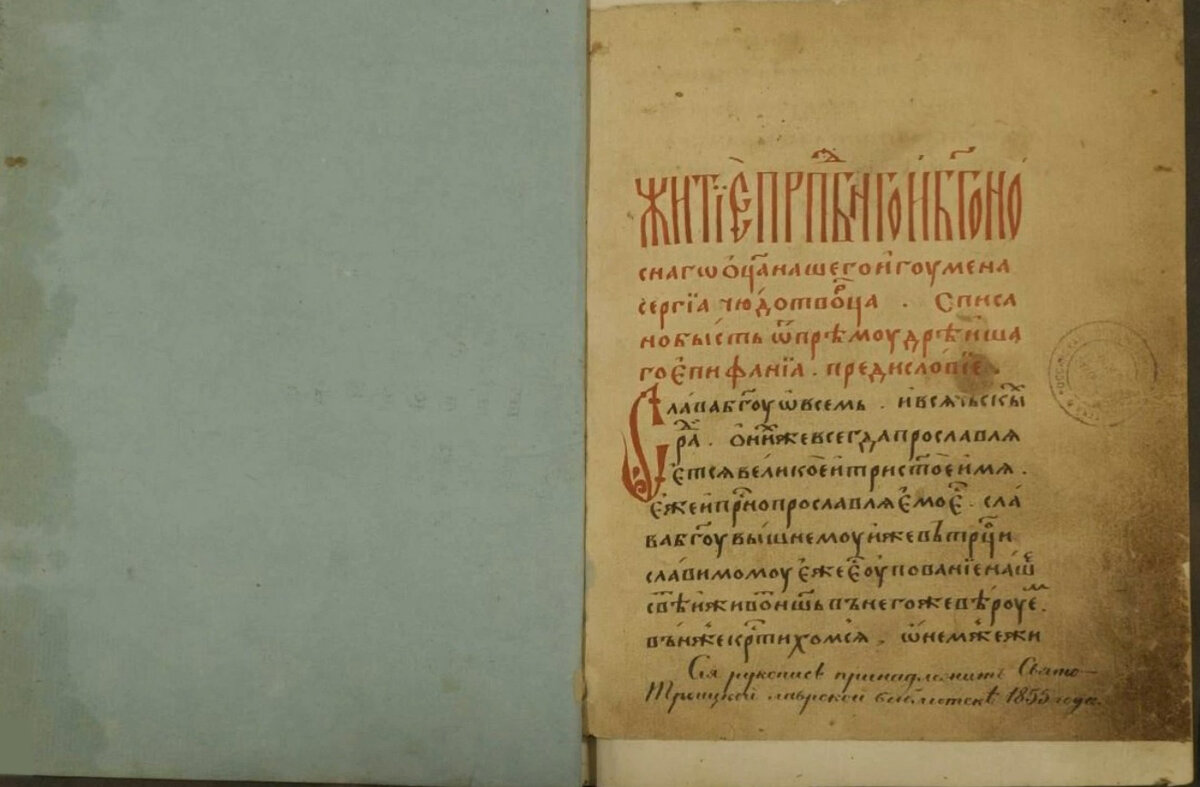 ЖИТЇЕ ПРПⷣБНАГО И БГ҃ОНО
снагѡ ѻц҃а нашего игоумена
сергїа чюдотвоⷬ҇ца . Списа
но бысть ѿ прѣмоудрѣиша
го Епифанїа . предисловїе .
Слава бг҃оу ѡ всемь .
раⷣ . ѻ ниⷯже всегда прославлѧ
етсѧ великое и трист҃ое имѧ .
еже и прⷭ҇но прославлѧемо еⷭ҇ . сла
ва бг҃оу вышнемоу иже въ трⷪ҇ци
славимомоу еже еⷭ҇ оупованїе наше
свѣⷮ и живоⷮ нашь въ него же вѣроуеⷨ .
въ нь же крⷭ҇тихомсѧ . ѡ нем же жи
Сія рукопись принадлежитъ Свято-
Троицкой лаврской библіотекѣ 1855 года.